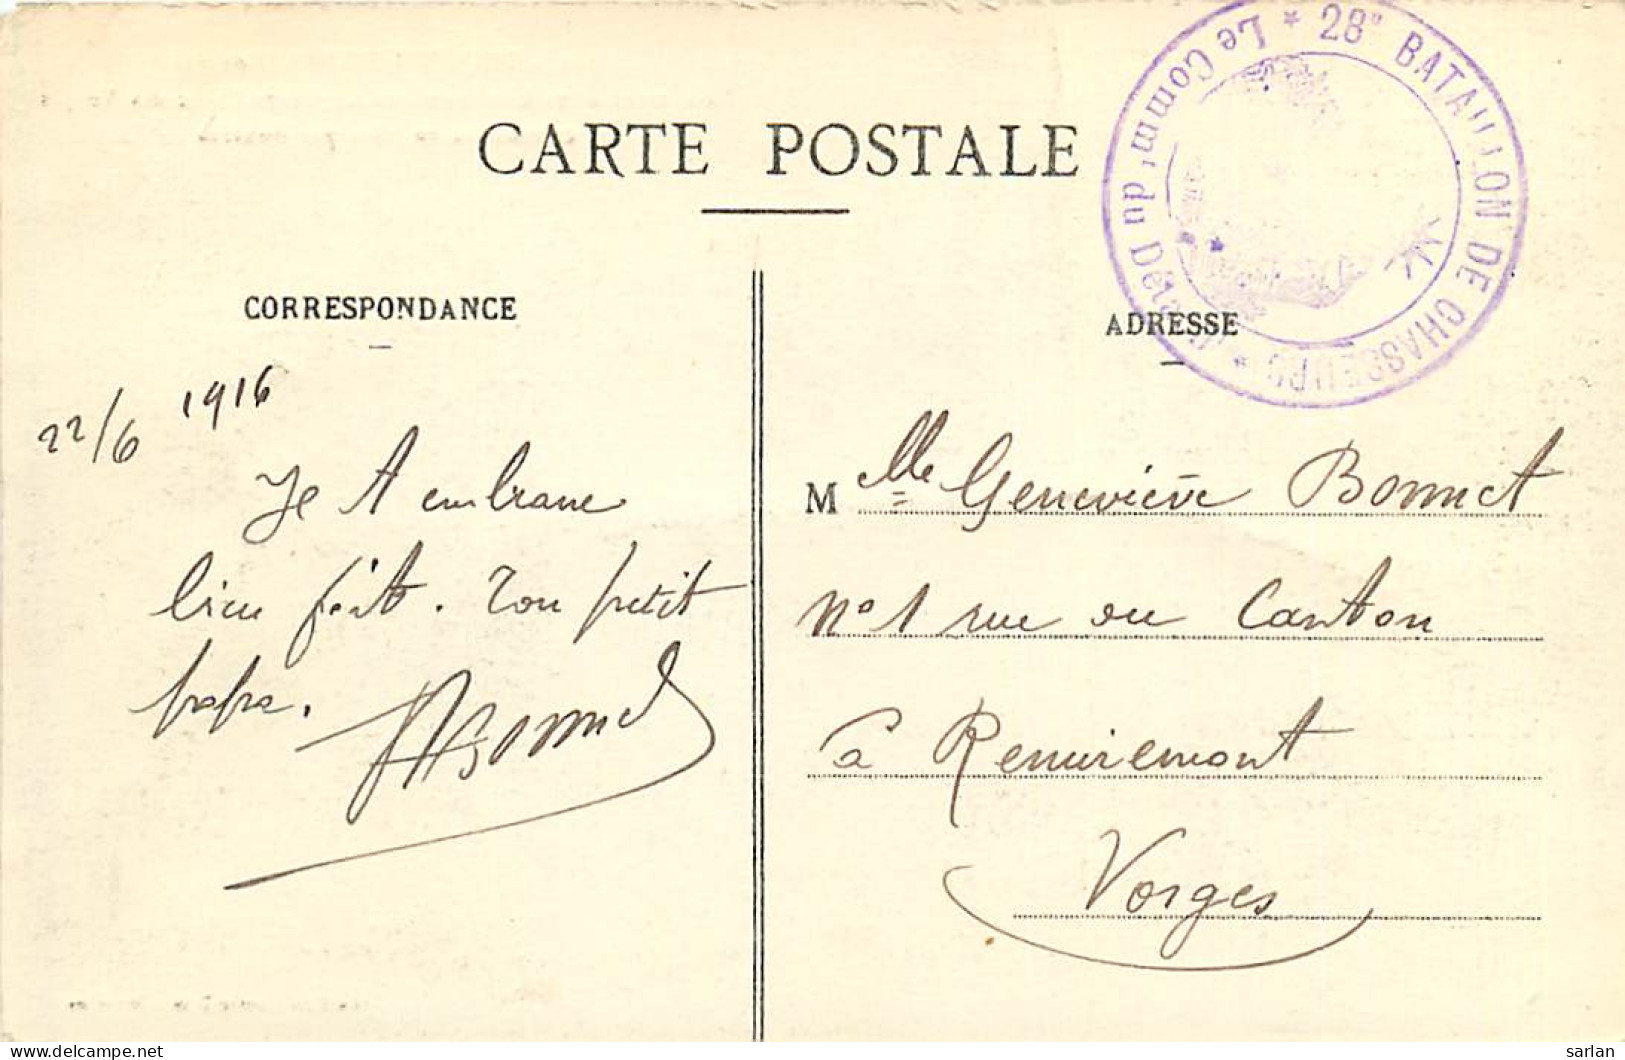 CARTE POSTALE
★ 28e BATAILLON DE CHASSEURS ★
Le Commt du Détachmt
CORRESPONDANCE
22/6 1916
Je t'embrasse
bien fort. Ton petit
papa.
Bonnet
ADRESSE
Mlle Geneviève Bonnet
No 1 rue du Canton
à Remiremont
Vosges
delcampe.net
sarlan